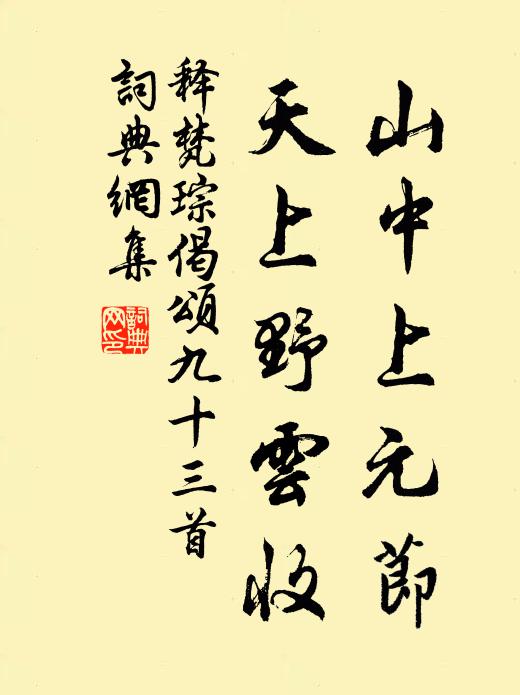 山中上元節
天上野雲收
释梵琮偈頌九十三首
詞典網集
詞典網印